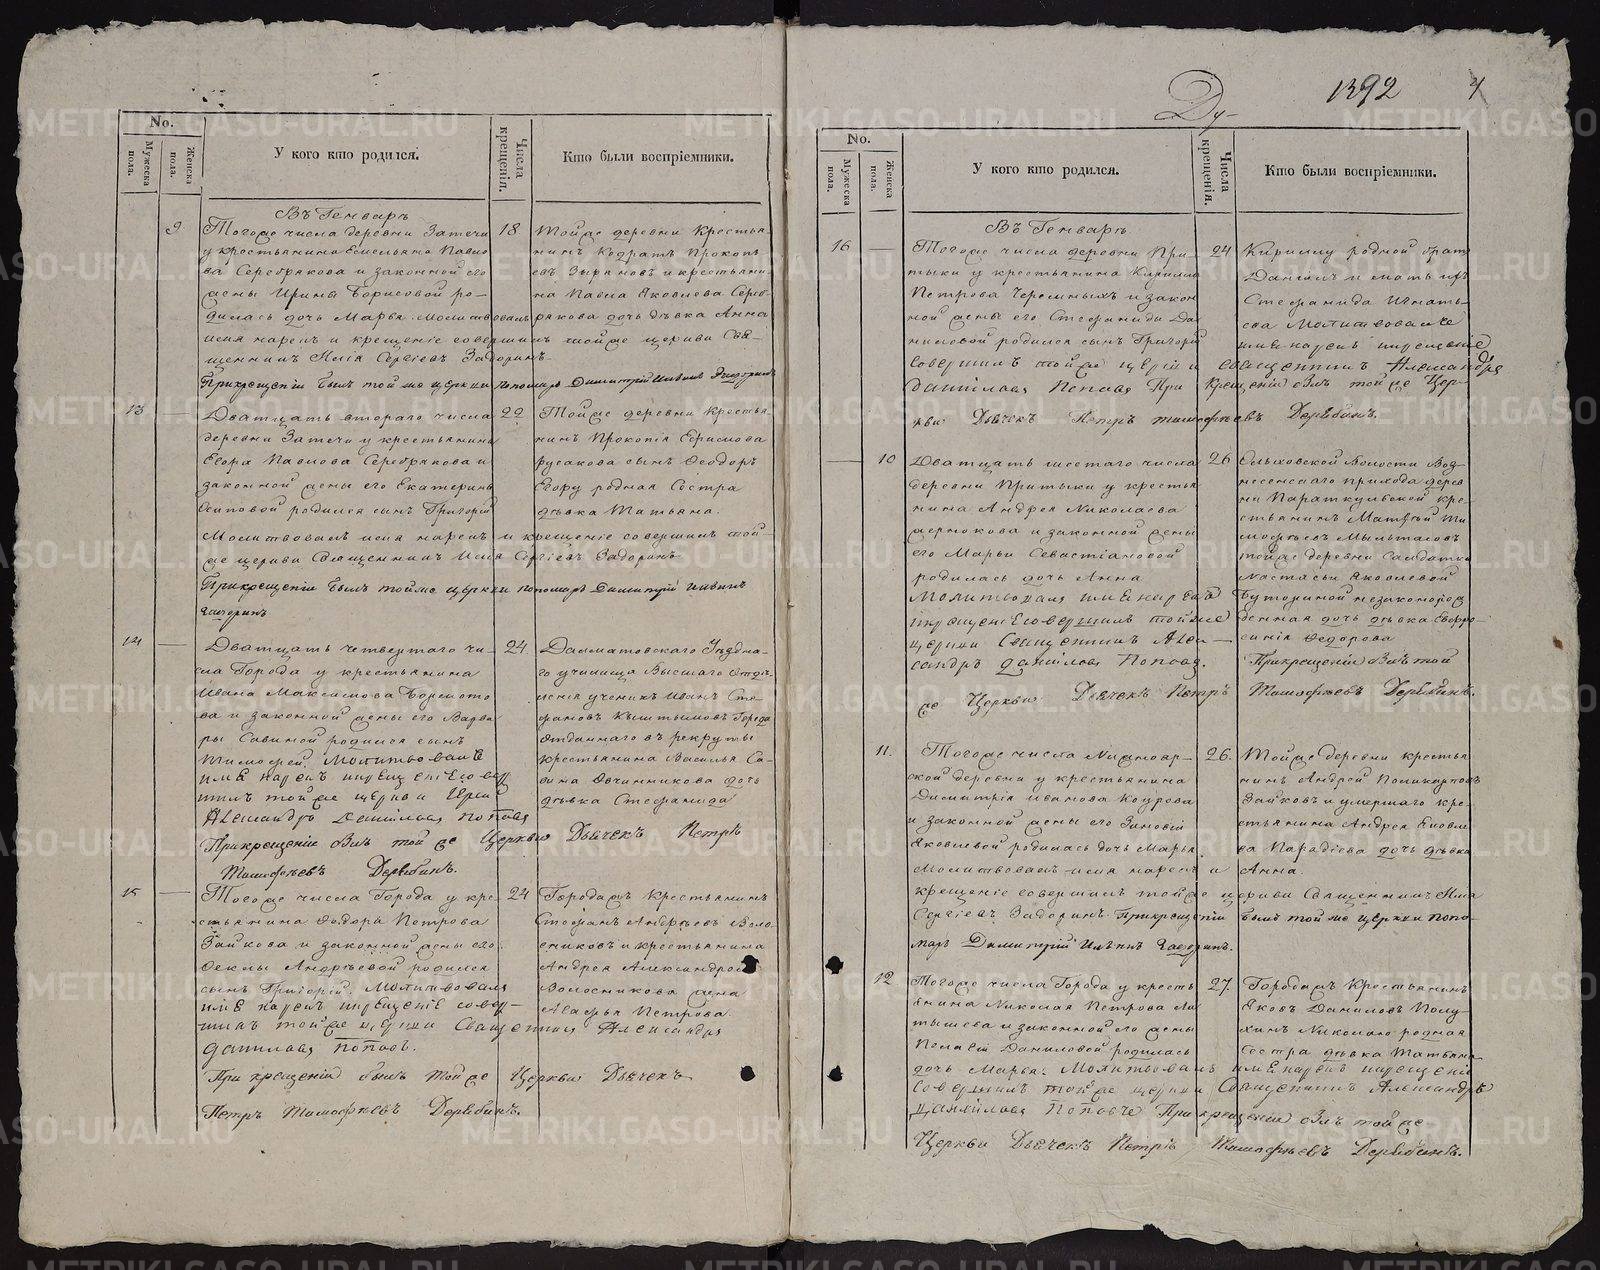 No.
Мужеска пола.
Женска пола.
У кого кто родился.
Числа крещенія.
Кто были воспріемники.
Въ Генварѣ
9
Тогоже числа деревни Затечи
у крестьянина Емельяна Павло
ва Серебрякова и законной его
жены Ирины Борисовой ро-
дилась дочь Марья. Молитвовалъ
имя нарекъ и крещеніе совершилъ тойже церкви Свя-
щенникъ Илія Сергіевъ Задоринъ.
Прикрещеніи былъ тойже церкви пономарь Димитрій
18
Тойже деревни Крестья-
нинъ Кодратъ Прокопь
евъ Зыряновъ и крестьяни-
на Павла Яковлева Сереб-
рякова дочь дѣвка Анна
13
Дватцать втораго числа
деревни Затечи у крестьянина
Егора Павлова Серебрякова и
законной жены его Екатерины
Осиповой родился сынъ Григорій
Молитвовалъ имя нарекъ и крещеніе совершилъ той-
же церкви Священникъ Илія Сергіевъ Задоринъ
Прикрещеніи былъ тойже церкви пономарь Димитрій
22
Тойже деревни крестья-
нинъ Прокопія Ефимова
Русакова сынъ Ѳеодоръ
Егору родная Сестра
дѣвка Татьяна.
14
Дватцать четвертаго чи-
сла Города у крестьянина
Ивана Максимова
ва и законной жены его Варва
ры Савиной родился сынъ
Тимофей. Молитвовалъ
имя нарекъ и крещеніе совер
шилъ тойже церкви Іерей
Александръ Даниловъ Поповъ
Прикрещеніе былъ тойже Церкви Дьячекъ Петръ
Тимофѣевъ Дерябинъ.
24.
Далматовскаго Уѣздна-
го училища Высшаго Отдѣ-
ленія ученикъ Иванъ Сте-
фановъ Кыштымовъ Города
Отданнаго въ рекруты
крестьянина Василья Са-
вина Овчинникова дочь
дѣвка Стефанида
15
Тогоже числа Города у кре-
стьянина Ѳедора Петрова
Зайкова и законной жены его
Ѳеклы Андрѣевой родился
сынъ Григорій. Молитвовалъ
имя нарекъ и крещеніе совер-
шилъ тойже церкви Священникъ Александръ
Даниловъ Поповъ.
При крещеніи былъ тойже Церкви Дьячекъ
Петръ Тимофѣевъ Дерябинъ.
24
Городахъ Крестьянинъ
Стефанъ Андрѣевъ Воло-
сниковъ и крестьянина
Андрея Александрова
Волосникова жена
Агафья Петрова
1392
4
Ду-
No.
Мужеска пола.
Женска пола.
У кого кто родился.
Числа крещенія.
Кто были воспріемники.
Въ Генварѣ
16
Тогоже числа деревни При-
тыки у крестьянина Кирилла
Петрова Черемныхъ и закон
ной жены его Стефаниды Да
ниловой родился сынъ Григорій
совершилъ тойже церкви священникъ Александръ
Даниловъ Поповъ При крещеніи былъ тойже Цер-
кви Дьячекъ Петръ Тимофѣевъ Дерябинъ.
24
Кириллу родной братъ
Даніилъ и мать ихъ
Стефанида Игнать-
ева Молитвовалъ
имя нарекъ крещеніе
10
Дватцать шестаго числа
деревни Притыки у крестья
нина Андрея Николаева
и законной жены
его Марьи Севастіановой
родилась дочь Анна
Молитвовалъ имя нарекъ
крещеніе совершилъ тойже
церкви Священникъ Алек-
сандръ Даниловъ Поповъ.
же Церкви Дьячекъ Петръ Тимофѣевъ Дерябинъ.
26
Ольховской Волости Воз-
несенскаго прихода дерев
ни Параткульской кре-
стьянинъ Матвѣй Ти
мофѣевъ Мыльтасовъ
тойже деревни Салдатки
Настасьи Яковлевой
Буториной незаконорож
денная дочь дѣвка Евфро-
синія Ѳедорова
Прикрещеніи былъ той
11.
Тогоже числа Нижнояр-
ской деревни у крестьянина
Димитрія Иванова Кодрова
и законной жены его Зиновіи
Яковлевой родилась дочь Марья
Молитвовалъ имя нарекъ и
крещеніе совершилъ тойже церкви Священникъ Илія
Сергіевъ Задоринъ. Прикрещеніи былъ тойже церкви поно-
марь Димитрій
26.
Тойже деревни крестья
нинъ Андрей Поликарповъ
Зайковъ и умершаго кре-
стьянина Андрея Яковле
ва Парадіева дочь дѣвка
Анна.
12
Тогоже числа Города у кресть
янина Николая Петрова Ла
тышева и законной его жены
Пелагіи Даниловой родилась
дочь Марья. Молитвовалъ имя нарекъ крещеніе
совершилъ тойже церкви Священникъ Александръ
Даниловъ Поповъ При крещеніи былъ тойже
Церкви Дьячекъ Петръ Тимофѣевъ Дерябинъ.
27.
Городахъ Крестьянинъ
Яковъ Даниловъ Полу-
хинъ Николаю родная
сестра дѣвка Татьяна
METRIKI.GASO-URAL.RU